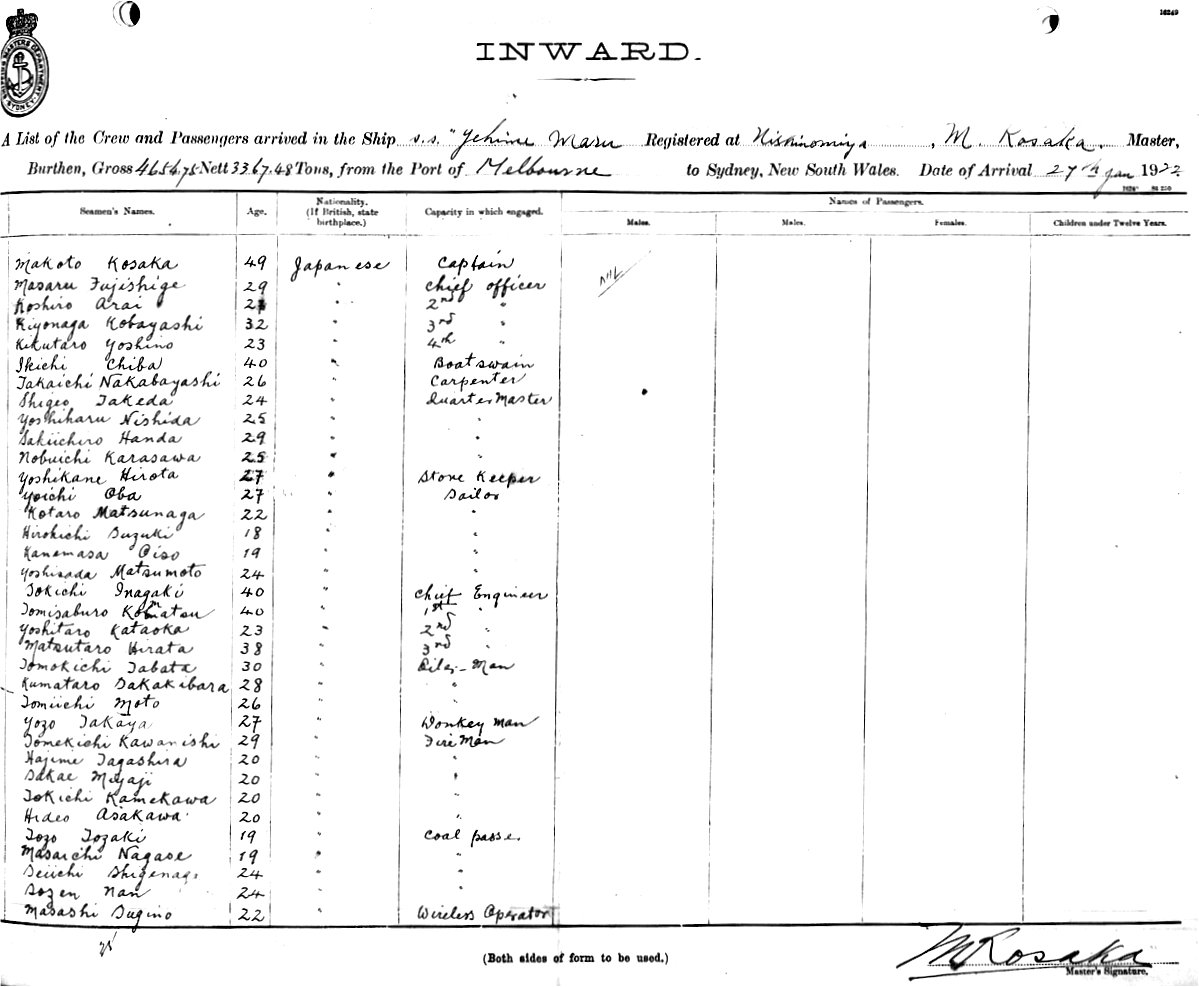 16249
SHIPPING MASTERS DEPARTMENT SYDNEY
INWARD.
A List of the Crew and Passengers arrived in the Ship s.s. "Yehime Maru Registered at Nishinomiya, M. Kosaka. Master,
Burthen, Gross 4654.75 Nett 3367.48 Tons, from the Port of Melbourne to Sydney, New South Wales. Date of Arrival 27th Jan 1922
Seamen's Names. Age. Nationality. (If British, state birthplace.) Capacity in which engaged. Names of Passengers.
Males. Males. Females. Children under Twelve Years.
Makoto Kosaka 49 Japanese Captain
Masaru Fujishige 29 " Chief officer
Koshiro Arai " 2nd "
Kiyonaga Kobayashi 32 " 3rd "
Kikutaro Yoshino 23 " 4th "
Ikichi Chiba 40 " Boatswain
Takaichi Nakabayashi 26 " Carpenter
Shigeo Takeda 24 " Quarter Master
Yoshiharu Nishida 25 " "
Sakiichiro Handa 29 " "
Nobuichi Karasawa 25 " "
Yoshikane Hirota 27 " Store Keeper
Yoichi Oba 27 " Sailor
Kotaro Matsunaga 22 " "
Hirokichi Suzuki 18 " "
Kanemasa Oiso 19 " "
Yoshisada Matsumoto 24 " "
Tokichi Inagaki 40 " Chief Engineer
Tomisaburo Komatsu 40 " 1st "
Yoshitaro Kataoka 23 " 2nd "
Matsutaro Hirata 38 " 3rd "
Tomokichi Tabata 30 " Oiler-Man
Kumataro Sakakibara 28 " "
Tomiichi Moto 26 " "
Yozo Takaya 27 " Donkey Man
Tomekichi Kawanishi 29 " Fire Man
Hajime Tagashira 20 " "
Sakae Miyaji 20 " "
Tokichi Kamekawa 20 " "
Hideo Asakawa 20 " "
Tozo Tozaki 19 " Coal passer
Masaichi Nagase 19 " "
Seiichi Shigenaga 24 " "
Sozen Nan 24 " "
Masashi Sugino 22 " Wireless Operator
(Both sides of form to be used.)
M Kosaka
Master's Signature.